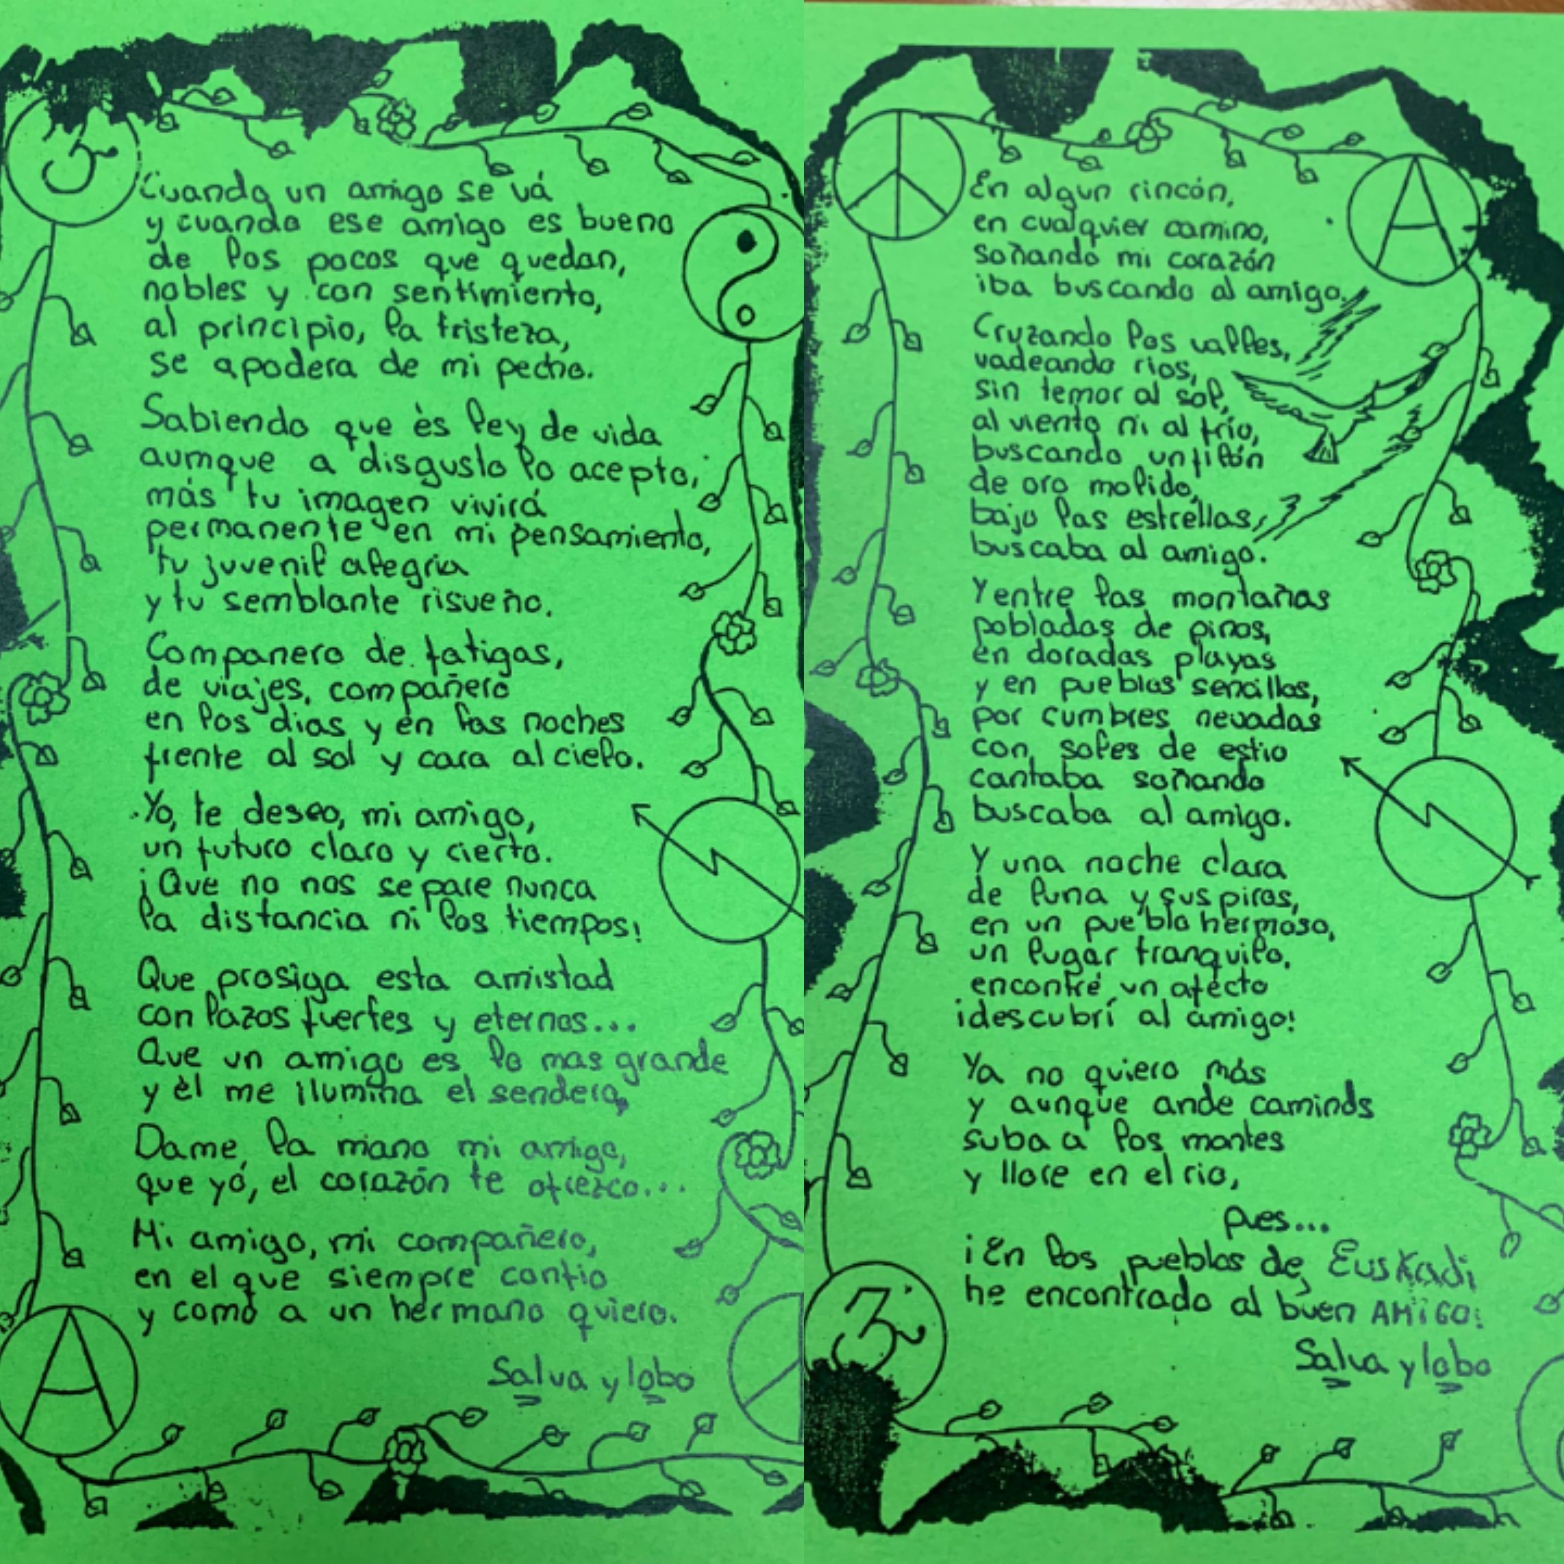 Cuando un amigo se vá
y cuando ese amigo es bueno
de los pocos que quedan,
nobles y con sentimiento,
al principio, la tristeza,
se apodera de mi pecho.
Sabiendo que és ley de vida
aunque a disgusto lo acepto,
más tu imagen vivirá
permanente en mi pensamiento,
tu juvenil alegria
y tu semblante risueño.
Companero de fatigas,
de viajes, compañero
en los dias y en las noches
frente al sol y cara al cielo.
Yo, te deseo, mi amigo,
un futuro claro y cierto.
¡Que no nos separe nunca
la distancia ni los tiempos!
Que prosiga esta amistad
con lazos fuertes y eternos...
Que un amigo es lo mas grande
y él me ilumina el sendero,
Dame, la mano mi amigo,
que yó, el corazón te ofrezco...
Mi amigo, mi compañero,
en el que siempre confio
y como a un hermano quiero.
Salva y lobo
En algun rincón,
en cualquier camino,
soñando mi corazón
iba buscando al amigo.
Cruzando los valles,
vadeando rios,
sin temor al sol,
al viento ni al frio,
buscando un filón
de oro molido,
bajo las estrellas,
buscaba al amigo.
Y entre las montañas
pobladas de pinos,
en doradas playas
y en pueblos sencillos,
por cumbres nevadas
con, soles de estio
cantaba soñando
buscaba al amigo.
Y una noche clara
de luna y suspiros,
en un pueblo hermoso,
un lugar tranquilo,
encontré, un afecto
¡descubrí al amigo!
Ya no quiero más
y aunque ande caminos
suba a los montes
y llore en el rio,
pues...
¡En los pueblos de, Euskadi
he encontrado al buen AMiGO!
Salva y lobo